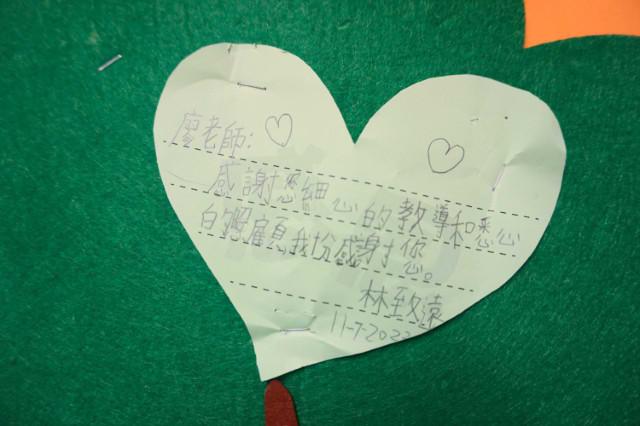 廖老師:
感謝您細心的教導和悉心
的照顧我份感謝您。
林致遠
11-7-2022